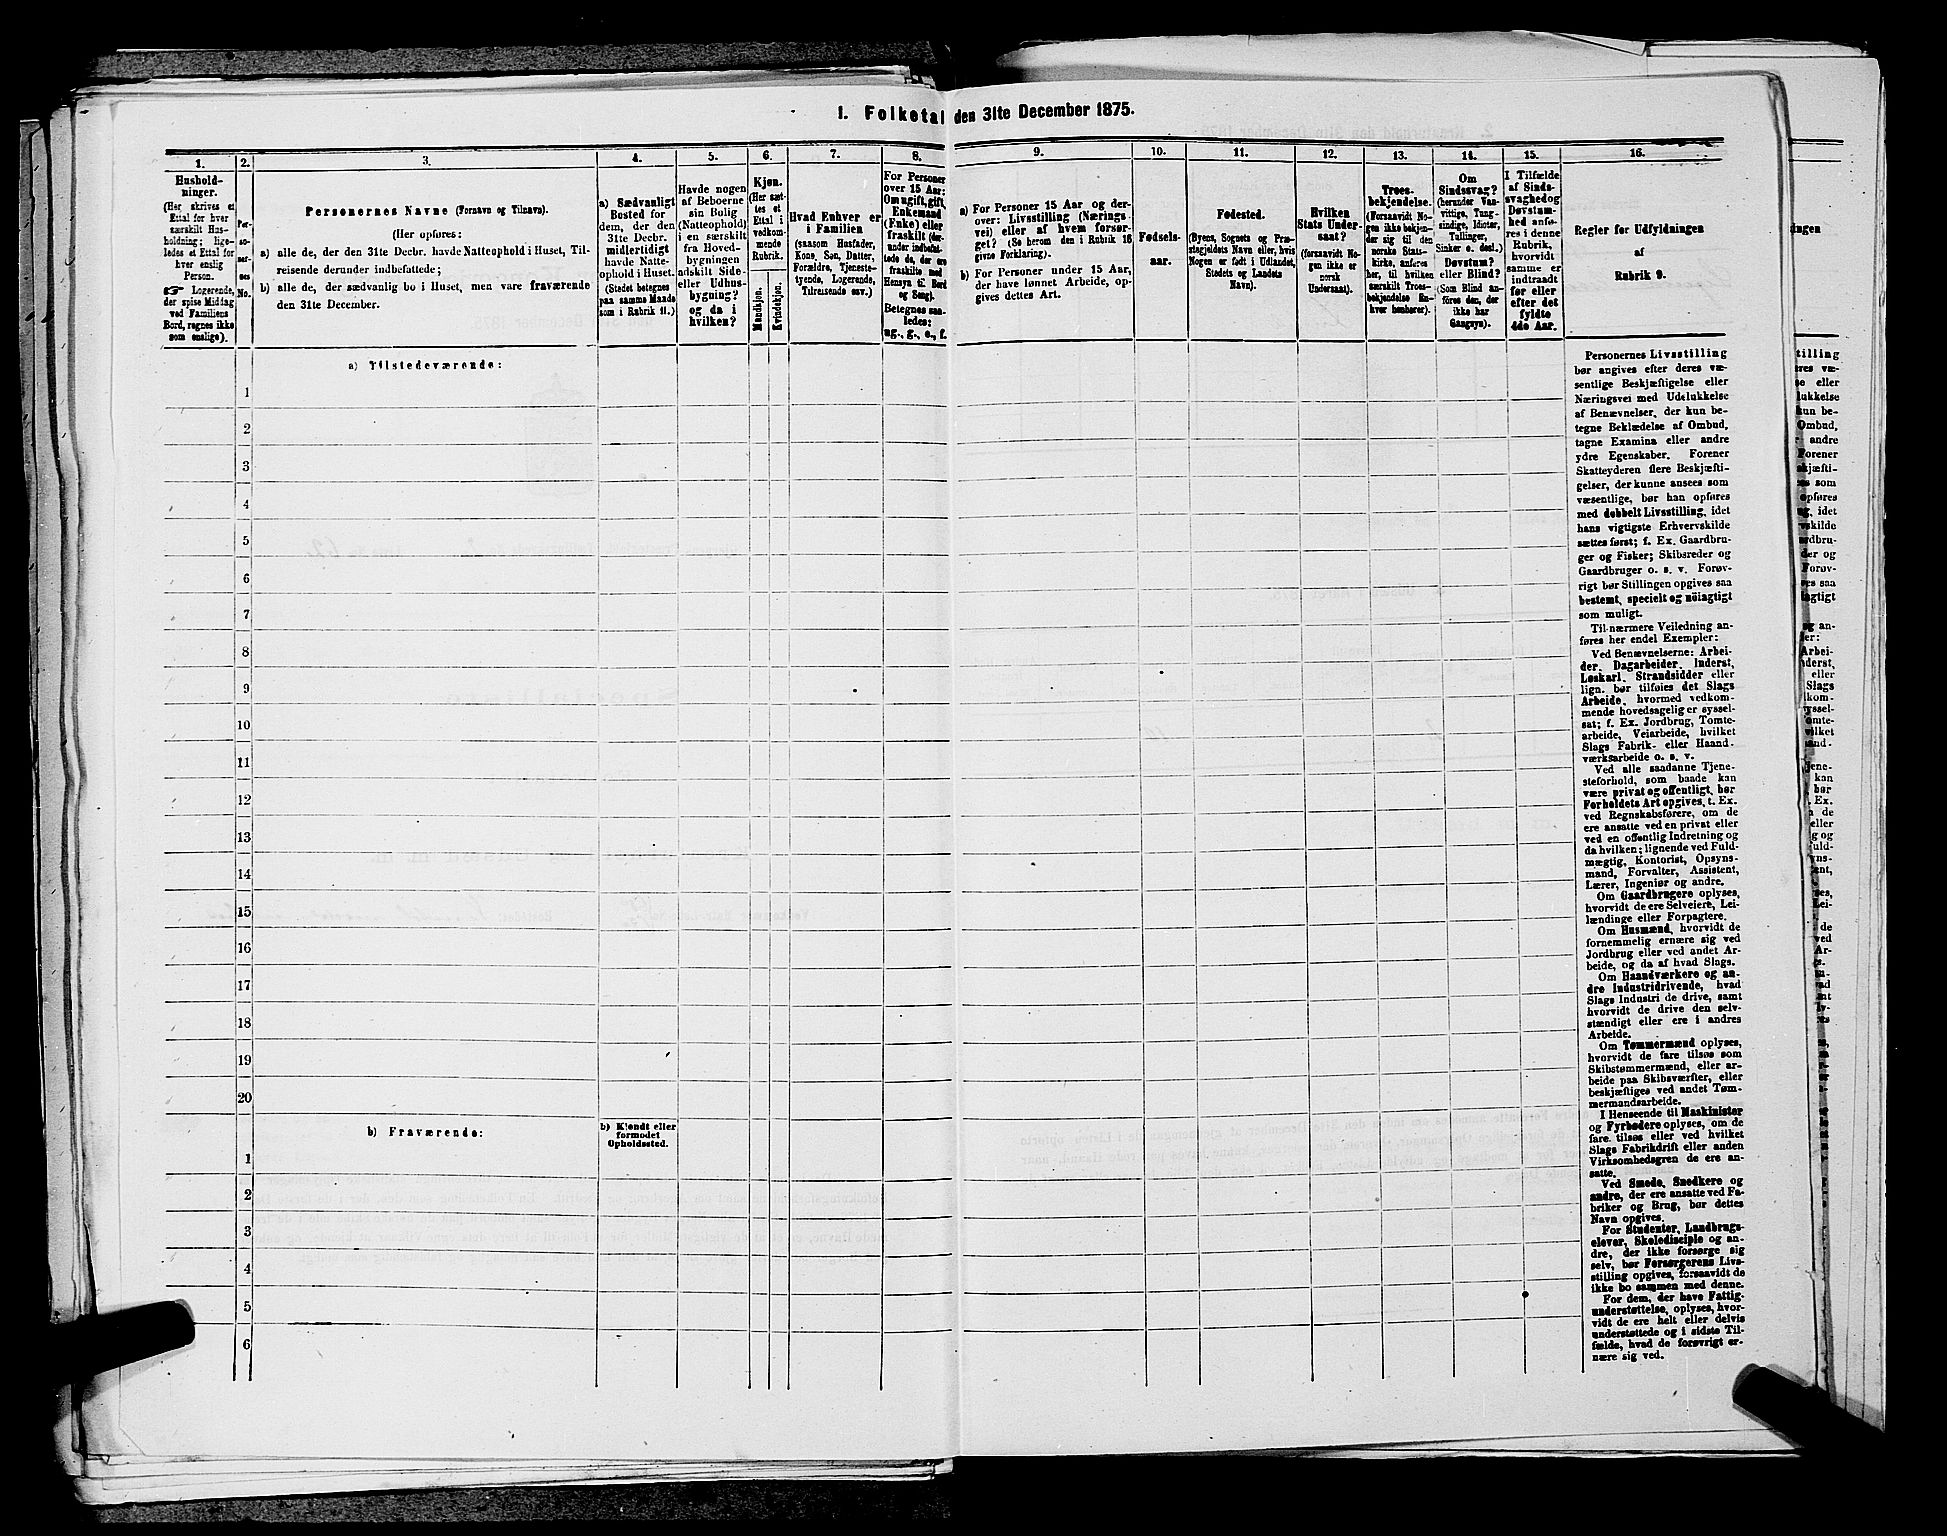 1. Folketal den 31te December 1875.
1.
2.
3.
4.
5.
6.
7.
8.
9.
10.
11.
12.
13.
14.
15.
16.
Hushold-
ninger.
(Her skrives et
Ettal for hver
særskilt Hus-
holdning; lige-
ledes et Ettal for
hver enslig
Person.
☞ Logerende,
der spise Middag
ved Familiens
Bord, regnes ikke
som enslige).
Per-
so-
ner-
nes
No.
Personernes Navne (Fornavn og Tilnavn).
(Her opføres:
a) alle de, der den 31te Decbr. havde Natteophold i Huset, Til-
reisende derunder indbefattede;
b) alle de, der sædvanlig bo i Huset, men vare fraværende
den 31te December.
a) Sædvanligt
Bosted for
dem, der den
31te Decbr.
midlertidigt
havde Natte-
ophold i Huset.
(Stedet betegnes
paa samme Maade
som i Rubrik 11.)
Havde nogen
af Beboerne
sin Bolig
(Natteophold)
i en særskilt
fra Hoved-
bygningen
adskilt Side-
eller Udhus-
bygning?
og da i
hvilken?
Kjøn.
(Her sæt-
tes et
Ettal i
vedkom-
mende
Rubrik.
Mandkjøn.
Kvindekjøn.
Hvad Enhver er
i Familien
(saasom Husfader,
Kone, Søn, Datter,
Forældre, Tjeneste-
tyende, Logerende,
Tilreisende osv.)
For Personer
over 15 Aar:
Om ugift, gift,
Enkemand
(Enke) eller
fraskilt (der-
under indbefat-
tede de, der ere
fraskilte med
Hensyn til Bord
og Seng).
Betegnes saa-
ledes:
ug., g., e., f.
a) For Personer 15 Aar og der-
over: Livsstilling (Nærings-
vei) eller af hvem forsør-
get? (Se herom den i Rubrik 16
givne Forklaring).
b) For Personer under 15 Aar,
der have lønnet Arbeide, op-
gives dettes Art.
Fødsels-
aar.
Fødested.
(Byens, Sognets og Præ-
stegjeldets Navn eller, hvis
Nogen er født i Udlandet,
Stedets og Landets
Navn).
Hvilken
Stats Under-
saat?
(forsaavidt No-
gen ikke er
norsk
Undersaat).
Troes-
bekjendelse.
(Forsaavidt No-
gen ikke bekjen-
der sig til den
norske Stats-
kirke, anføres
her, til hvilken
særskilt Troes-
bekjendelse En-
hver henhører).
Om
Sindssvag?
(herunder Van-
vittige, Tung-
sindige, Idioter,
Tullinger,
Sinker o. desl.)
Døvstum?
eller Blind?
(Som Blind an-
føres den, der
ikke har
Gangsyn).
I Tilfælde
af Sinds-
svaghedog
Døvstum-
hed anfø-
res i denne
Rubrik,
hvorvidt
samme er
indtraadt
før eller
efter det
fyldte
4de Aar.
Regler for Udfyldningen
af
Rubrik 9.
a) Tilstedeværende:
1
2
3
4
5
6
7
8
9
10
11
12
13
14
15
16
17
18
19
20
b) Fraværende:
b) Kjendt eller
formodet
Opholdssted.
1
2
3
4
5
6
Personernes Livsstilling
bør angives efter deres væ-
sentlige Beskjæftigelse eller
Næringsvei med Udelukkelse
af Benævnelser, der kun be-
tegne Beklædelse af Ombud,
tagne Examina eller andre
ydre Egenskaber. Forener
Skatteyderen flere Beskjæfti-
gelser, der kunne ansees som
væsentlige, bør han opføres
med dobbelt Livsstilling, idet
hans vigtigste Erhvervskilde
sættes først; f. Ex. Gaardbru-
ger og Fisker; Skibsreder og
Gaardbruger o. s. v. Forøv-
rigt bør Stillingen opgives saa
bestemt, specielt og nöiagtigt
som muligt.
Til nærmere Veiledning an-
føres her endel Exempler:
Ved Benævnelserne: Arbei-
der, Dagarbeider, Inderst,
Løskarl, Strandsidder eller
lign. bør tilføies det Slags
Arbeide, hvormed vedkom-
mende hovedsagelig er syssel-
sat; f. Ex. Jordbrug, Tomte-
arbeide, Veiarbeide, hvilket
Slags Fabrik- eller Haand-
værksarbeide o. s. v.
Ved alle saadanne Tjene-
steforhold, som baade kan
være privat og offentligt, bør
Forholdets Art opgives, t. Ex.
ved Regnskabsførere, om de
ere ansatte ved en privat eller
ved en offentlig Indretning og
da hvilken; lignende ved Fuld-
mægtig, Kontorist, Opsyns-
mand, Forvalter, Assistent,
Lærer, Ingeniør og andre.
Om Gaardbrugere oplyses,
hvorvidt de ere Selveiere, Lei-
lændinge eller Forpagtere.
Om Husmænd, hvorvidt de
fornemmelig ernære sig ved
Jordbrug eller ved andet Ar-
beide, og da af hvad Slags.
Om Haandværkere og an-
dre Industridrivende, hvad
Slags Industri de drive, samt
hvorvidt de drive den selv-
stændigt eller ere i andres
Arbeide.
Om Tømmermænd oplyses,
hvorvidt de fare tilsøs som
Skibstømmermænd, eller ar-
beide paa Skibsværfter, eller
beskjæftiges ved andet Tøm-
mermandsarbeide.
I Henseende til Maskinister
og Fyrbødere oplyses, om de
fare tilsøs eller ved hvilket
Slags Fabrikdrift eller anden
Virksomhedsgren de ere an-
satte.
Ved Smede, Snedkere og
andre, der ere ansatte ved Fa-
briker og Brug, bør dettes
Navn opgives.
For Studenter, Landbrugs-
elever, Skoledisciple og an-
dre, der ikke forsørge sig
selv, bør Forsørgerens Livs-
stilling opgives, forsaavidt de
ikke bo sammen med denne.
For dem, der have Fattig-
understøttelse, oplyses, hvor-
vidt de ere helt eller delvis
understøttede og i sidste Til-
fælde, hvad de forøvrigt er-
nære sig ved.